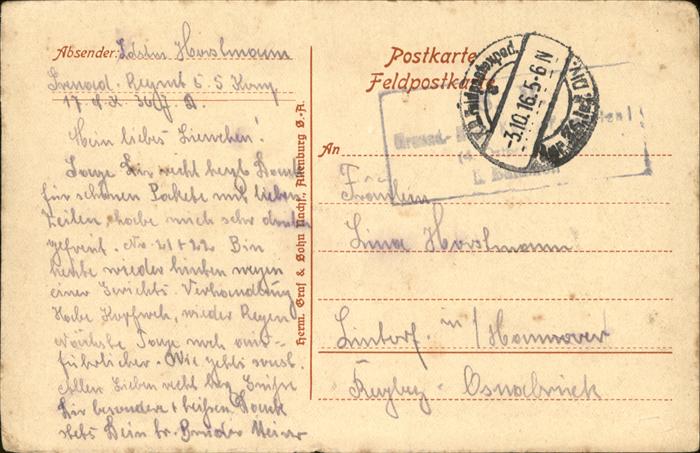 Absender: Ldstm. Horstmann
Grenad. Regmt 5. 5 Komp
17 A.K. 36 J. D.
Mein liebes Lienchen!
Sage Dir recht herzl Dank
für schönen Pakete mit lieben
Zeilen, habe mich sehr
gefreut. No 21 + 22. Bin
heute wieder hinten wegen
einer Gerichts Verhandlung
Habe Kopfweh, wieder Regen
Nächste Tage noch aus-
führlicher. Wie gehts sonst.
Allen Lieben recht hrz Grüße
Dir besondere + heißen Dank
stets Dein tr. Bruder Heinr
Herm. Graf & Sohn Nachf., Altenburg S.-A.
Postkarte
Feldpostkarte
K.D. Feldpostexped.
-3.10.16. 5-6 N
Grenad.-
An
Fräulein
Lina Horstmann
Lintorf in / Hannover
Regbez. Osnabrück